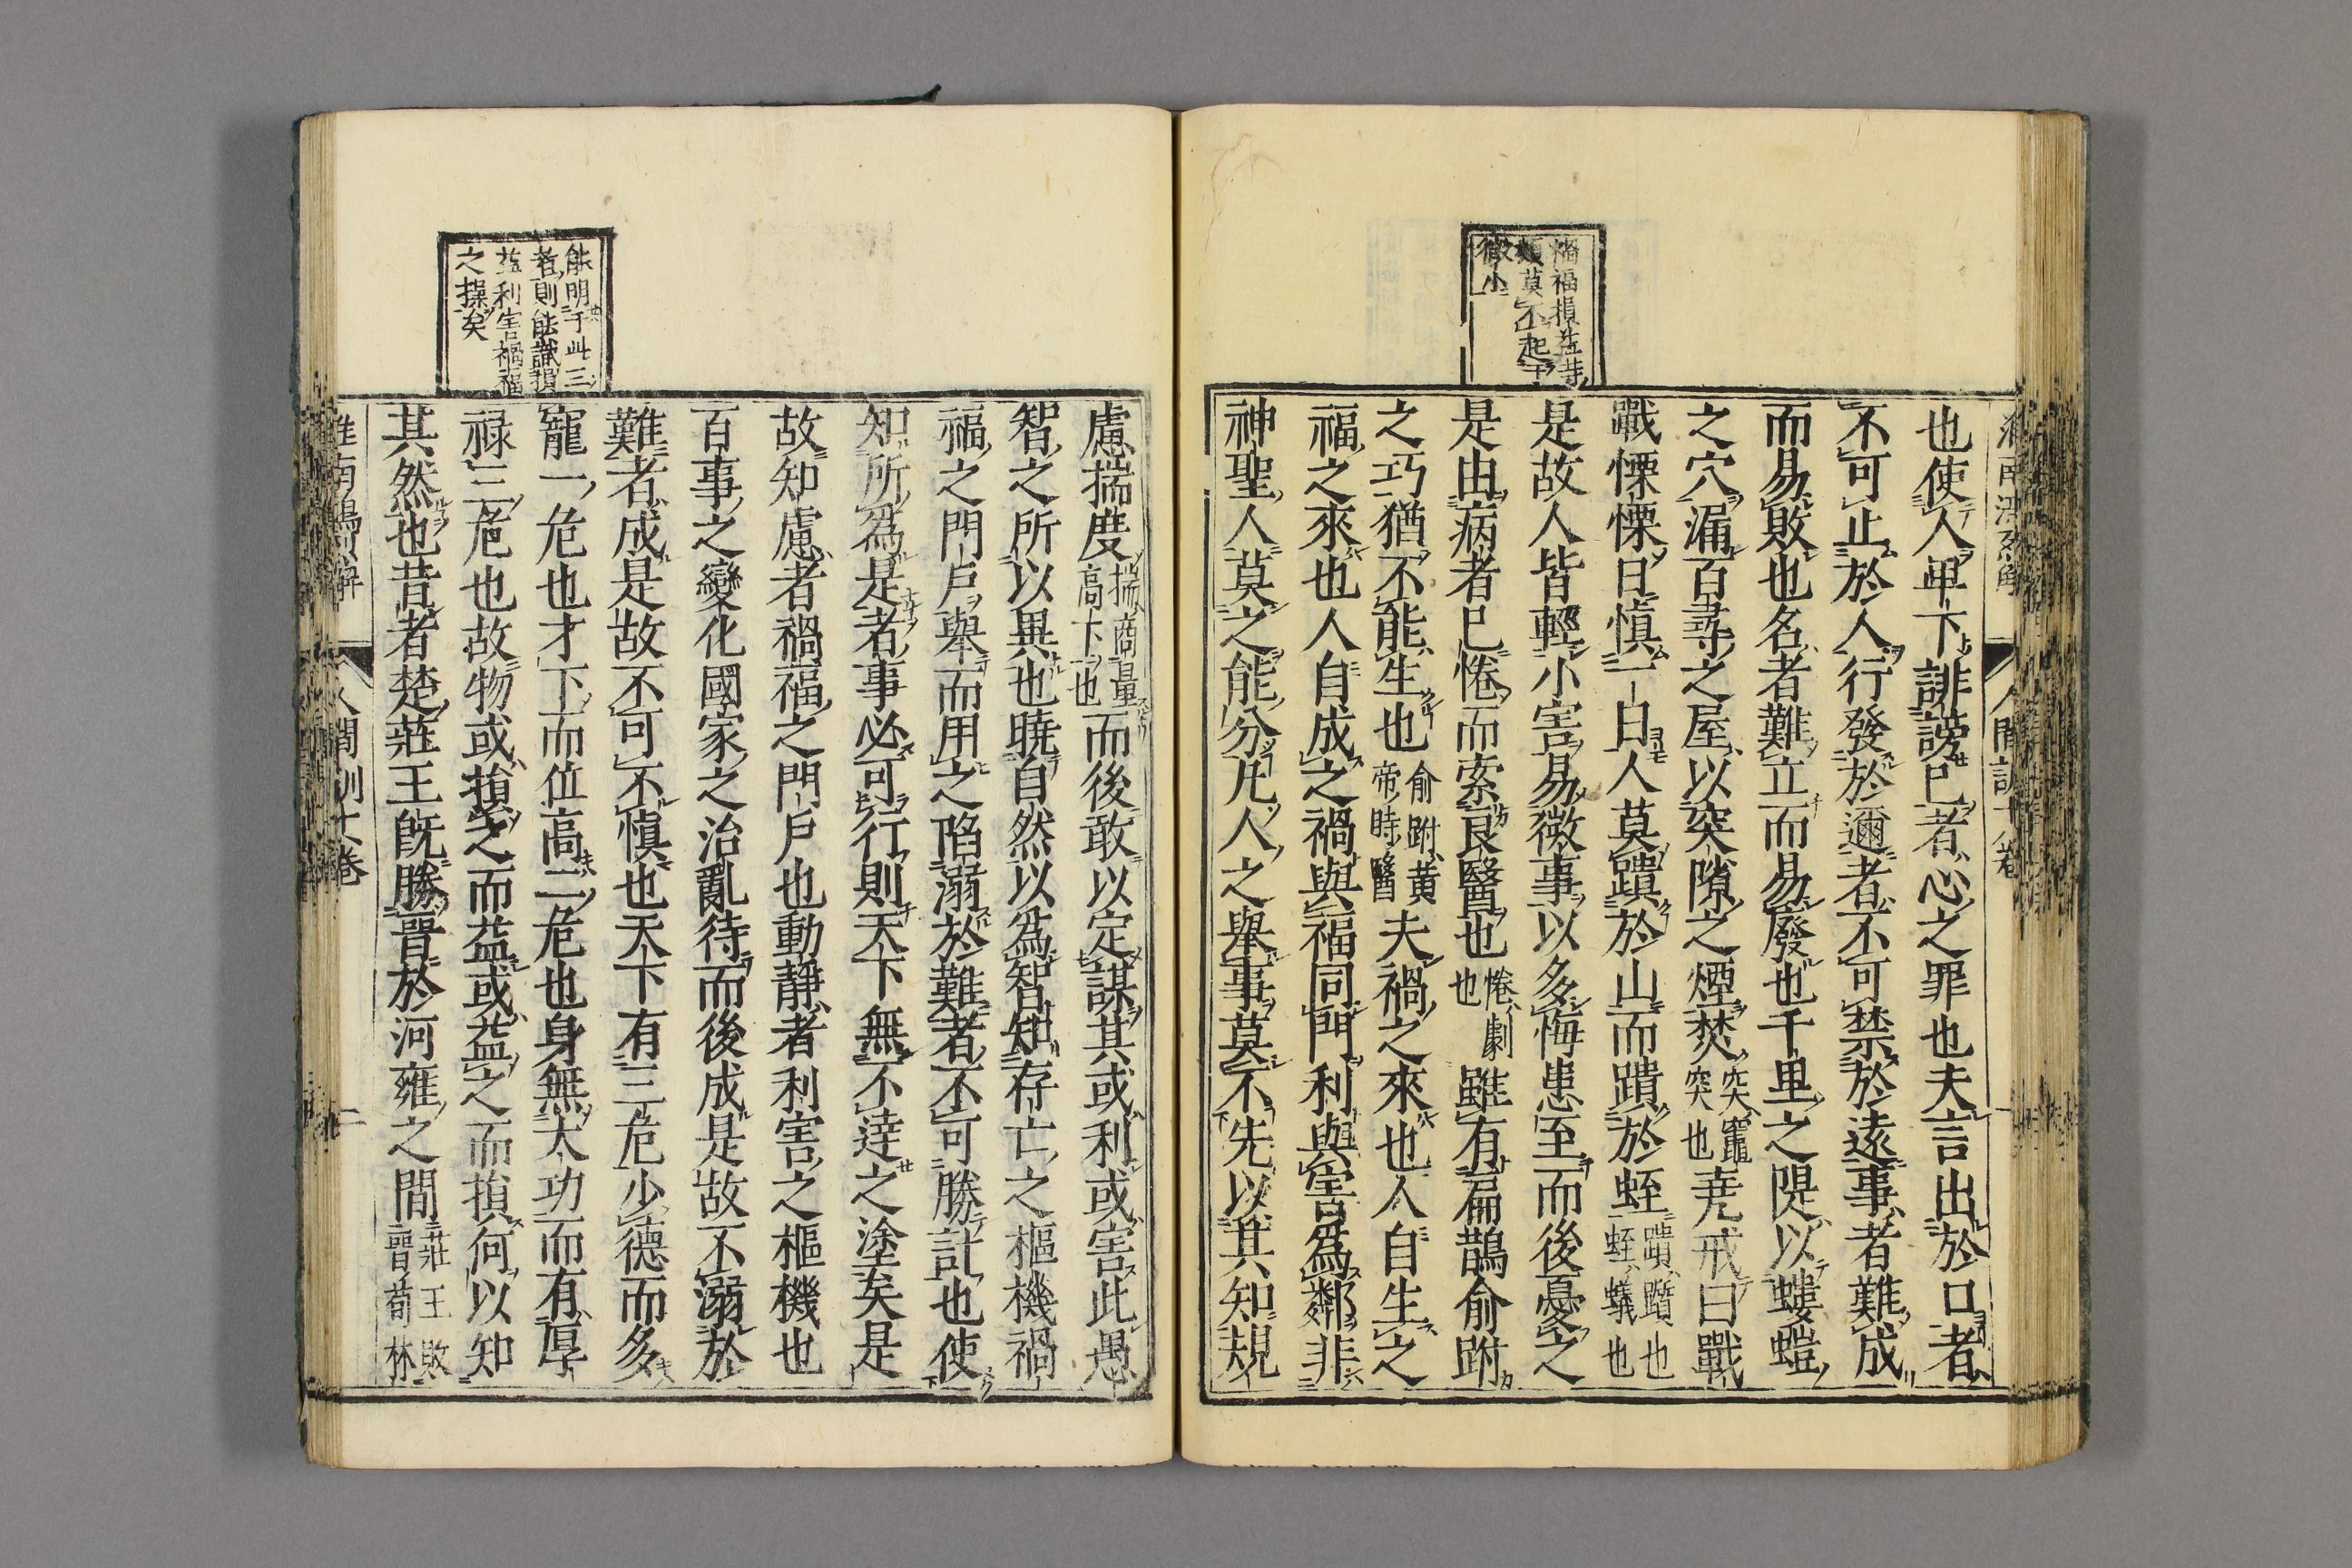 禍福損益等
類莫不起于
微小
也使人卑下誹謗已者心之罪也夫言出於口者
不可止於人行發於邇者不可禁於遠事者難成
而易敗也名者難立而易廢也千里之隄以螻螘
之穴漏百尋之屋以突隙之煙焚突竈突也堯戒曰戰
戰慄慄日慎一日人莫蹪於山而蹪於蛭蹪躓也蛭蟻也
是故人皆輕小害易微事以多悔患至而後憂之
是由病者已惓而索良醫也惓劇也雖有扁鵲俞跗
之巧猶不能生也俞跗黃帝時醫夫禍之來也人自生之
福之來也人自成之禍與福同門利與害爲鄰非
神聖人莫之能分凡人之舉事莫不先以其知規
能明于此三
者則能識損
益利害禍福
之操矣
慮揣度揣商量高下也而後敢以定謀其或利或害此愚
智之所以異也曉自然以爲智知存亡之樞機禍
福之門戶舉而用之陷溺於難者不可勝計也使
知所爲是者事必可行則天下無不達之塗矣是
故知慮者禍福之門戶也動靜者利害之樞機也
百事之變化國家之治亂待而後成是故不溺於
難者成是故不可不慎也天下有三危少德而多
寵一危也才下而位高二危也身無大功而有厚
祿三危也故物或損之而益或益之而損何以知
其然也昔者楚莊王既勝晉於河雍之間莊王敗晉荀林
淮南鴻烈解 人間訓十八卷 二